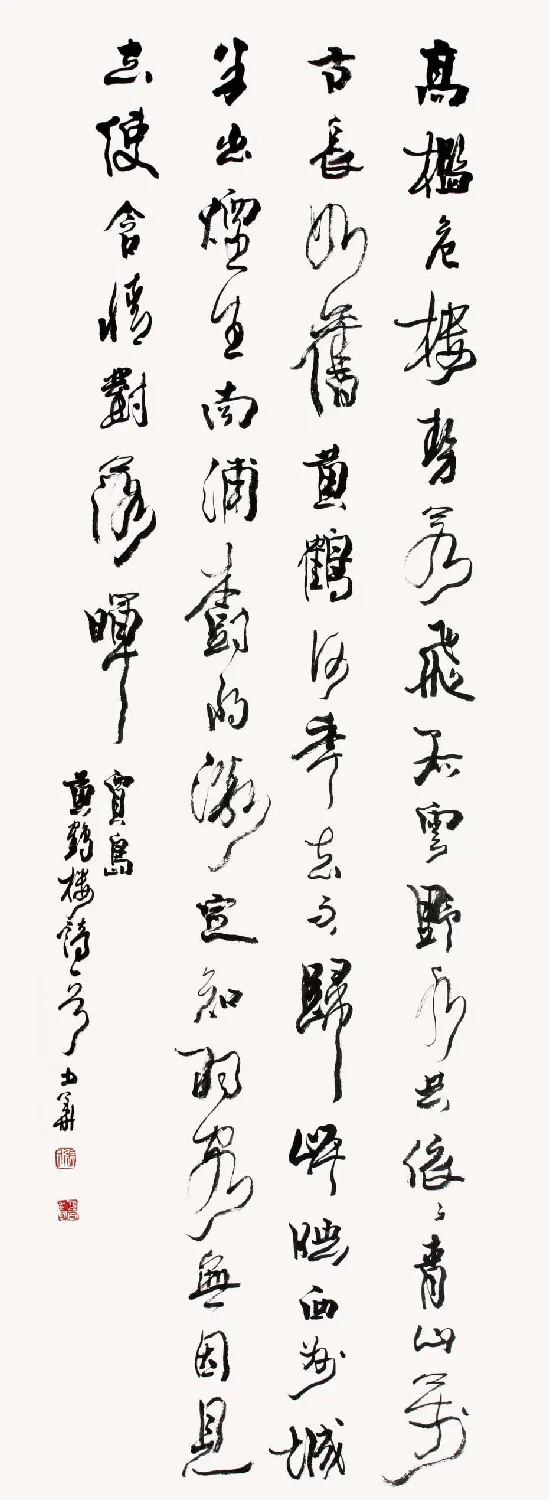 高檻危樓勢若飛孤雲野水共依々青山萬
古長如舊黃鶴何年去不歸岸映西州城
半出煙生南浦樹將微定知羽客無因見
空使含情對落暉
賈島
黃鶴樓詩一首